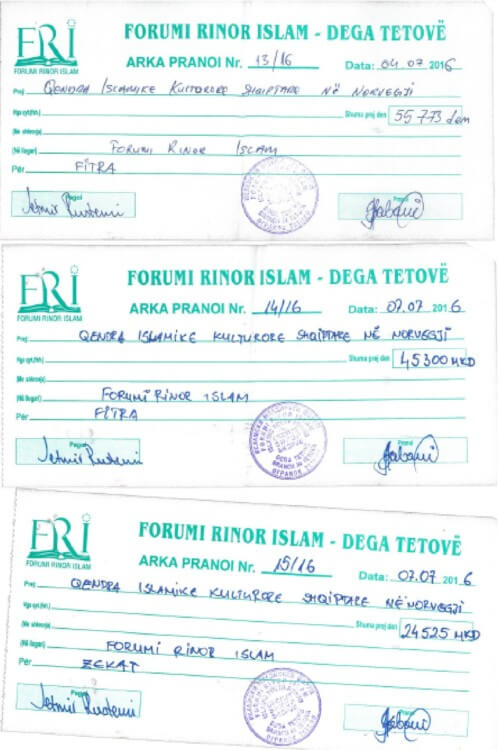 FRI
FORUMI RINOR ISLAM
FORUMI RINOR ISLAM - DEGA TETOVË
ARKA PRANOI Nr. 13/16 Data: 04.07 2016
Prej QENDRA ISLAMIKE KULTURORE SHQIPTARE NË NORVEGJI
Nga qyt.(fsh.) Shuma prej den 55 773 den
(Me shkronja)
(Në llogari) FORUMI RINOR ISLAM
Për FITRA
Pagoi Pranoi
FRI
FORUMI RINOR ISLAM
FORUMI RINOR ISLAM - DEGA TETOVË
ARKA PRANOI Nr. 14/16 Data: 07.07 2016
Prej QENDRA ISLAMIKE KULTURORE SHQIPTARE NË NORVEGJI
Nga qyt.(fsh.) Shuma prej den 45300 MKD
(Me shkronja)
(Në llogari) FORUMI RINOR ISLAM
Për FITRA
Pagoi Pranoi
DEGA TETOVË
BRANCH IN TETOVA
FRI
FORUMI RINOR ISLAM
FORUMI RINOR ISLAM - DEGA TETOVË
ARKA PRANOI Nr. 15/16 Data: 07.07 2016
Prej QENDRA ISLAMIKE KULTURORE SHQIPTARE NË NORVEGJI
Nga qyt.(fsh.) Shuma prej den 24525 MKD
(Me shkronja)
(Në llogari) FORUMI RINOR ISLAM
Për ZEKAT
Pagoi Pranoi